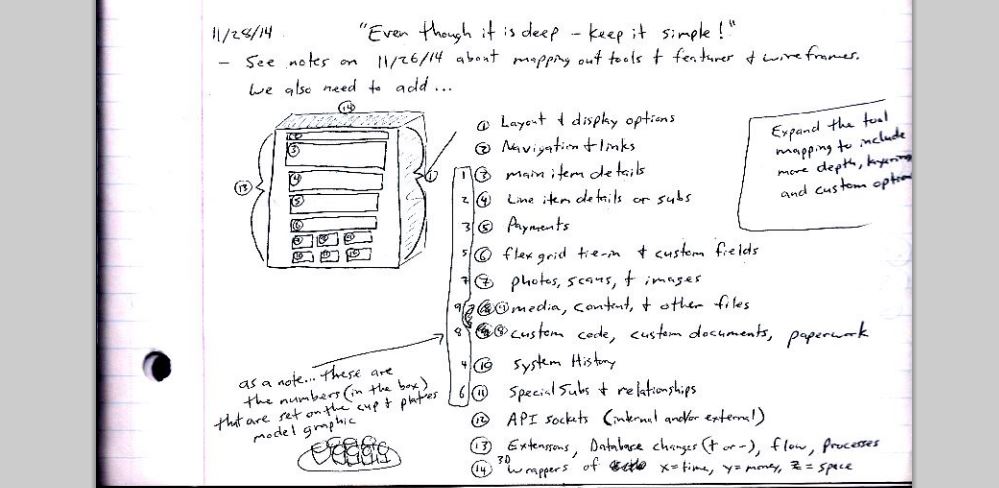 11/28/14 "Even though it is deep - keep it simple!"
- See notes on 11/26/14 about mapping out tools + features + wireframes.
We also need to add...
14
① Layout + display options
② Navigation + links
1 ③ main item details
2 ④ Line item details or subs
3 ⑤ Payments
5 ⑥ flex grid tie-in + custom fields
7 ⑦ photos, scans, + images
9 media, content, + other files
8 custom code, custom documents, paperwork
4 ⑩ System History
6 ⑪ Special Subs + relationships
⑫ API sockets (internal and/or external)
⑬ Extensions, Database changes (+ or -), flow, processes
⑭ 3D wrappers of x=time, y=money, z=space
Expand the tool
mapping to include
more depth, layering
and custom option
13
3
4
5
6
1
as a note... these are
the numbers (in the box)
that are set on the cup + plates
model graphic